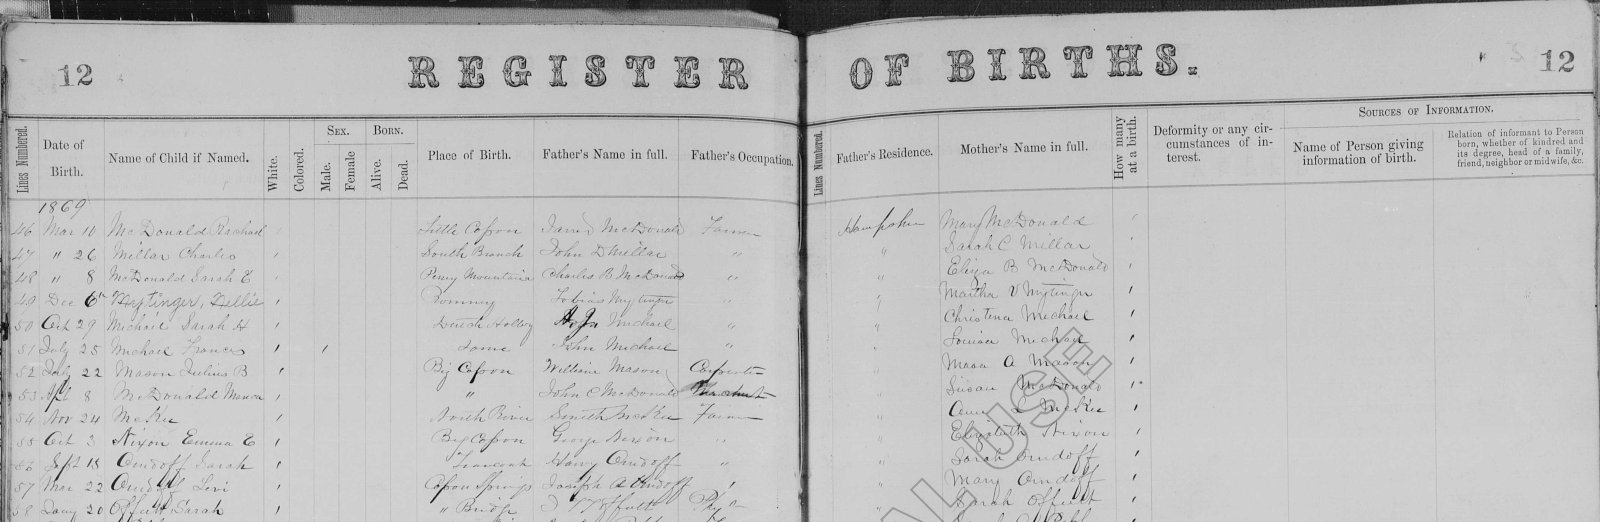 12 REGISTER OF BIRTHS. 12
Lines Numbered. Date of Birth. Name of Child if Named. White. Colored. Sex. Male. Female Born. Alive. Dead. Place of Birth. Father's Name in full. Father's Occupation. Lines Numbered. Father's Residence. Mother's Name in full. How many at a birth. Deformity or any circumstances of interest. Sources of Information. Name of Person giving information of birth. Relation of informant to Person born, whether of kindred and its degree, head of a family, friend, neighbor or midwife, &c.
1869
46 Mar 10 McDonald Rachael Little Capon McDonald Farmer Hampshire Mary McDonald
47 " 26 Millar Charles South Branch John D Millar " " Sarah C Millar
48 " 8 McDonald Sarah E Mountain Charles B McDonald " " Eliza B McDonald
49 Dec 6th Mytinger, Nellie Romney Tobias Mytinger " " Martha V Mytinger
50 Oct 29 Michael Sarah H Michael " " Christena Michael
51 July 25 Michael Frances Same John Michael " " Louisa Michael
52 July 22 Mason Julius B Big Capon William Mason Carpenter " A Mason
53 Apl 8 McDonald " John C McDonald " Susan McDonald
54 Nov 24 McKee North River Smith McKee Farmer " McKee
55 Oct 3 Nixon Emma E Big Capon George Nixon " " Elizabeth Nixon
56 Sept 18 Orndoff Sarah Orndoff " " Sarah Orndoff
57 Mar 22 Orndoff Levi Capon Springs Joseph A Orndoff " " Mary Orndoff
58 20 Offutt Sarah " Bridge Offutt " Sarah Offutt
AL USE